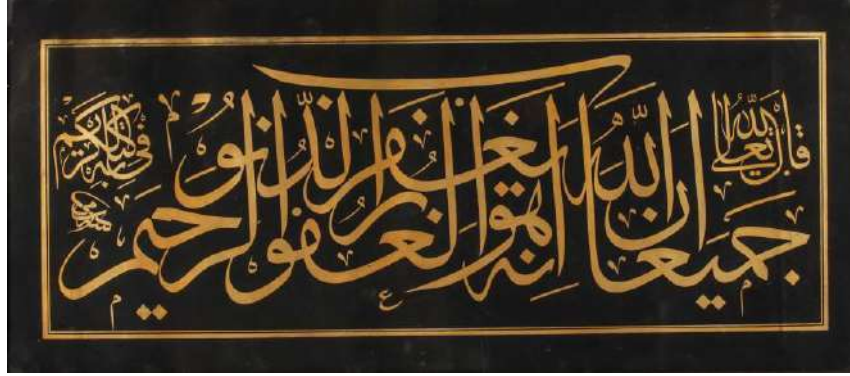 قال الله تعالى
ان الله يغفر الذنوب
جميعا انه هو الغفور الرحيم
في كتابه الكريم